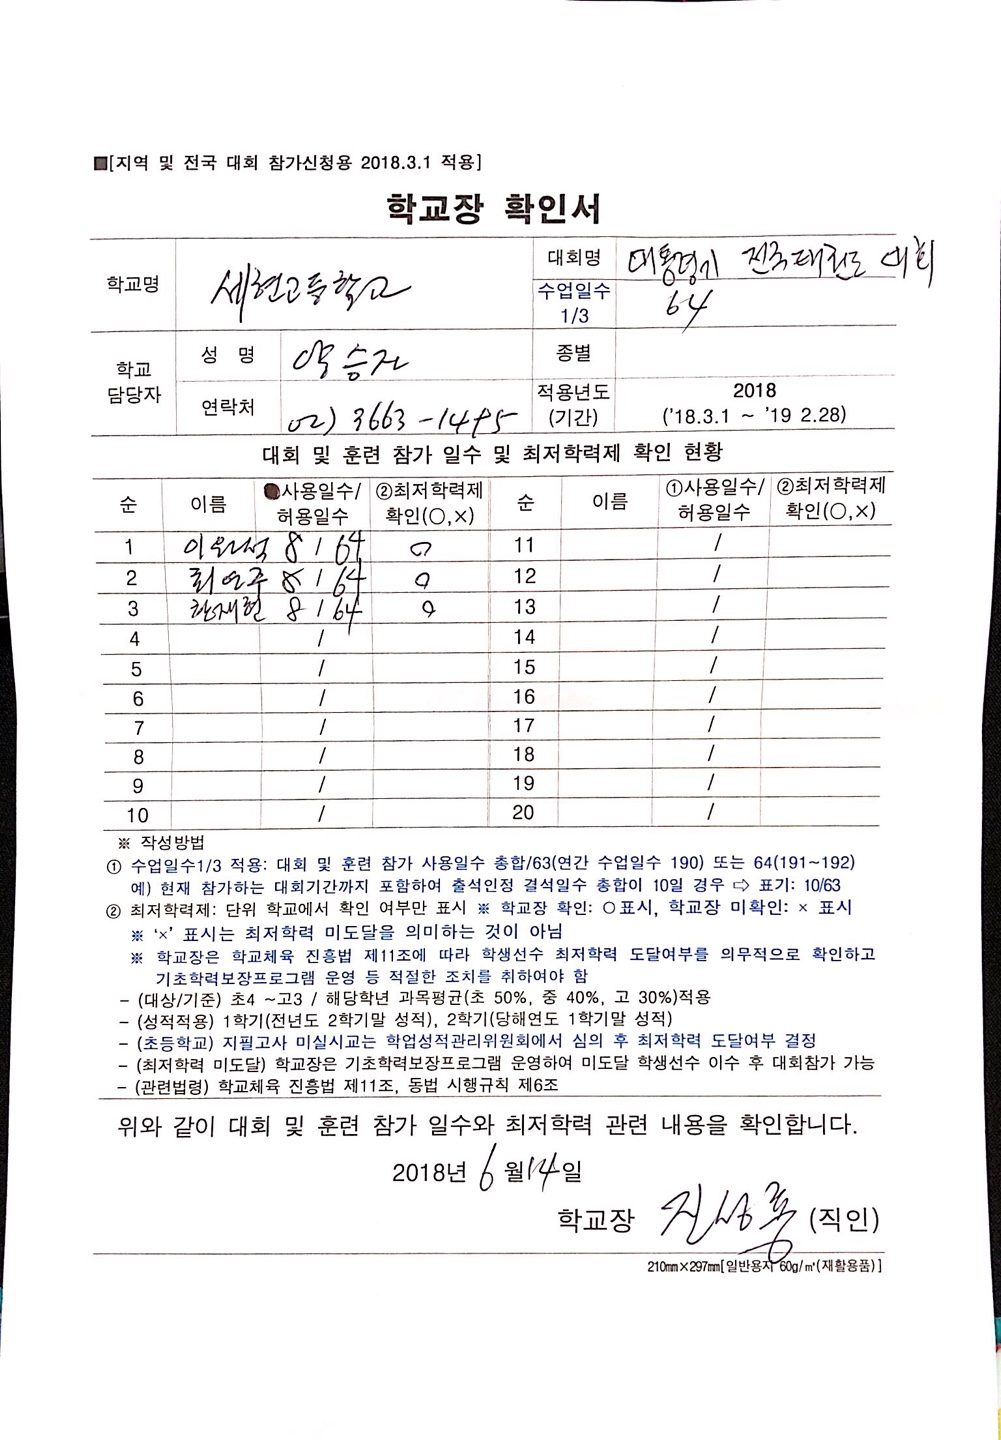 ■[지역 및 전국 대회 참가신청용 2018.3.1 적용]
학교장 확인서
학교명 세현고등학교 대회명 대통령기 전국태권도 대회
수업일수 1/3 64
학교 담당자 성 명 승 종별
연락처 02) 3663-1495 적용년도 (기간) 2018 ('18.3.1 ~ '19 2.28)
대회 및 훈련 참가 일수 및 최저학력제 확인 현황
순 이름 사용일수/허용일수 ②최저학력제 확인(○,×) 순 이름 ①사용일수/허용일수 ②최저학력제 확인(○,×)
1 8 / 64 ○ 11 /
2 최연주 8 / 64 ○ 12 /
3 한재현 8 / 64 ○ 13 /
4 / 14 /
5 / 15 /
6 / 16 /
7 / 17 /
8 / 18 /
9 / 19 /
10 / 20 /
※ 작성방법
① 수업일수1/3 적용: 대회 및 훈련 참가 사용일수 총합/63(연간 수업일수 190) 또는 64(191~192)
예) 현재 참가하는 대회기간까지 포함하여 출석인정 결석일수 총합이 10일 경우 ⇨ 표기: 10/63
② 최저학력제: 단위 학교에서 확인 여부만 표시 ※ 학교장 확인: ○표시, 학교장 미확인: × 표시
※ '×' 표시는 최저학력 미도달을 의미하는 것이 아님
※ 학교장은 학교체육 진흥법 제11조에 따라 학생선수 최저학력 도달여부를 의무적으로 확인하고
기초학력보장프로그램 운영 등 적절한 조치를 취하여야 함
- (대상/기준) 초4 ~고3 / 해당학년 과목평균(초 50%, 중 40%, 고 30%)적용
- (성적적용) 1학기(전년도 2학기말 성적), 2학기(당해연도 1학기말 성적)
- (초등학교) 지필고사 미실시교는 학업성적관리위원회에서 심의 후 최저학력 도달여부 결정
- (최저학력 미도달) 학교장은 기초학력보장프로그램 운영하여 미도달 학생선수 이수 후 대회참가 가능
- (관련법령) 학교체육 진흥법 제11조, 동법 시행규칙 제6조
위와 같이 대회 및 훈련 참가 일수와 최저학력 관련 내용을 확인합니다.
2018년 6월 14일
학교장 (직인)
210mm×297mm[일반용지 60g/㎡(재활용품)]